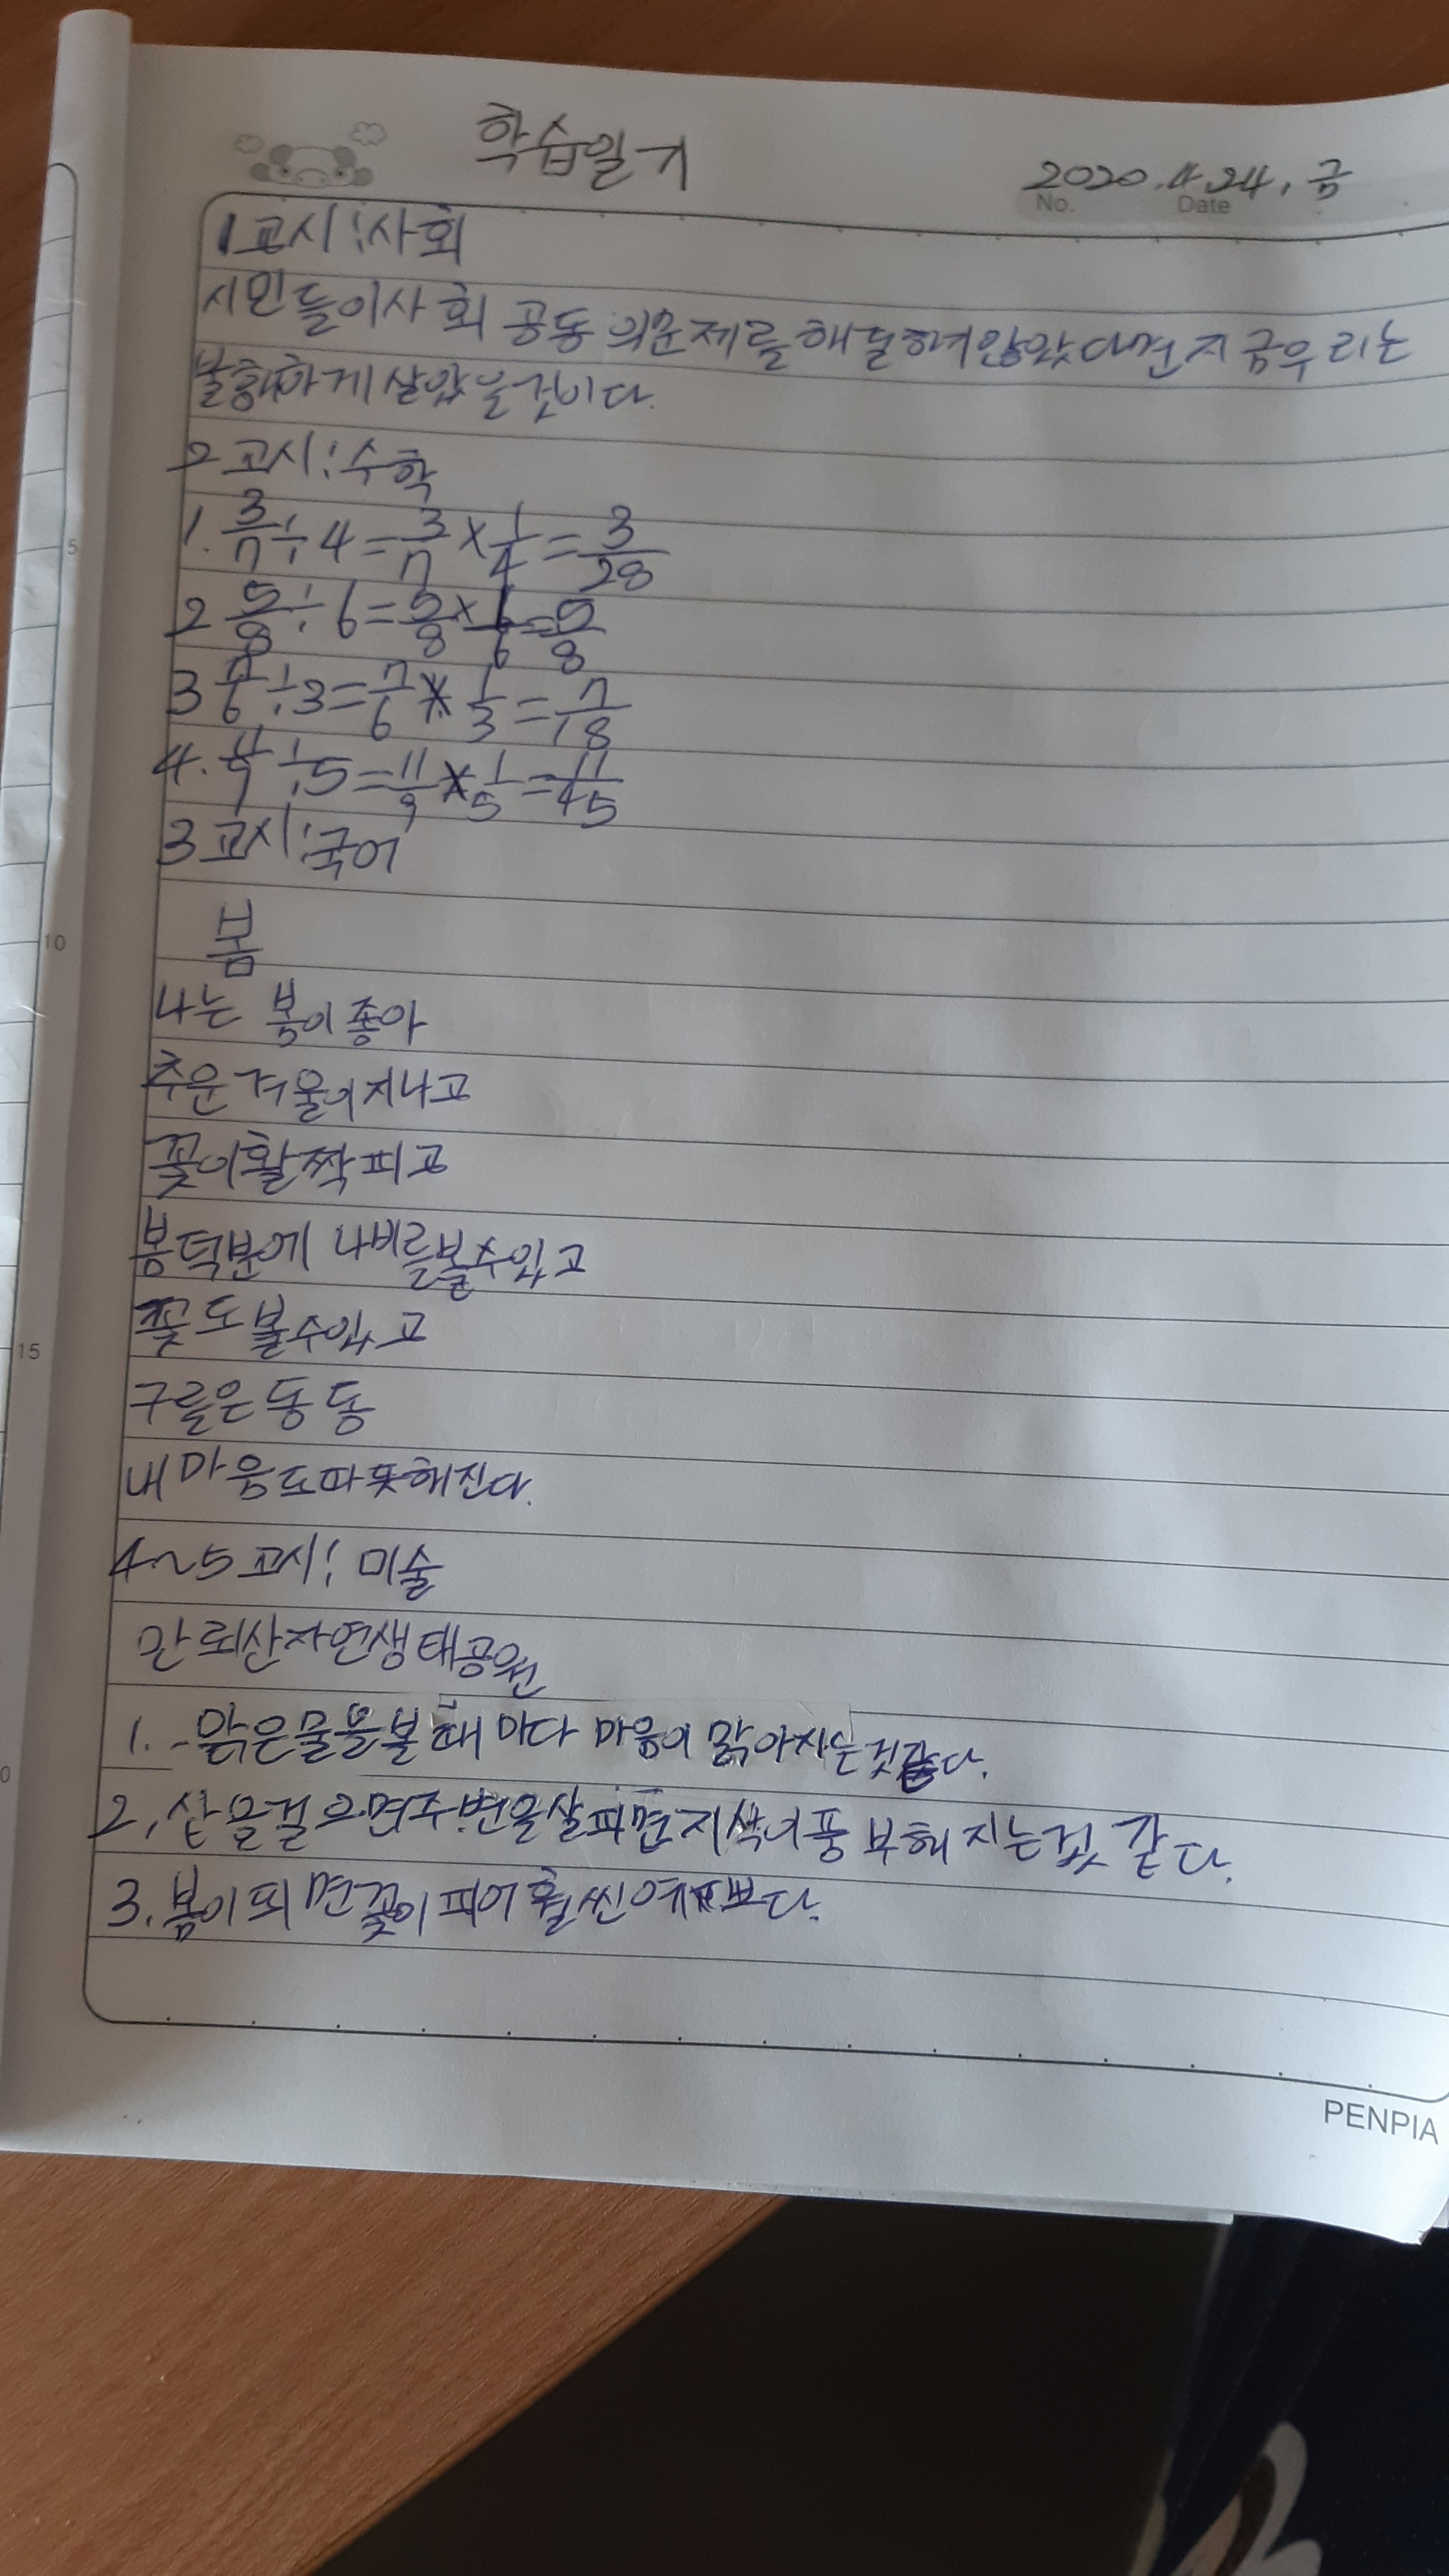 학습일기
2020.4.24.금
No. Date
1교시:사회
시민들이사회 공동의문제를해결하려않았다면지금우리는
불행하게살았을것이다.
2교시:수학
1. 3/7÷4=3/7×1/4=3/28
2 5/8÷6=5/8×1/6=5/8
3 7/6÷3=7/6×1/3=7/18
4. 11/9÷5=11/9×1/5=11/45
3교시:국어
봄
나는 봄이좋아
추운겨울이지나고
꽃이활짝피고
봄덕분에 나비를볼수있고
꽃도볼수있고
구름은둥둥
내마음도따뜻해진다.
4~5교시: 미술
만뢰산자연생태공원
1. -맑은물을볼때마다 마음이 맑아지는것같다.
2. 산을걸으면주변을살피면지식이풍부해지는것 같다.
3. 봄이되면꽃이피어훨씬예쁘다.
5
10
15
0
PENPIA